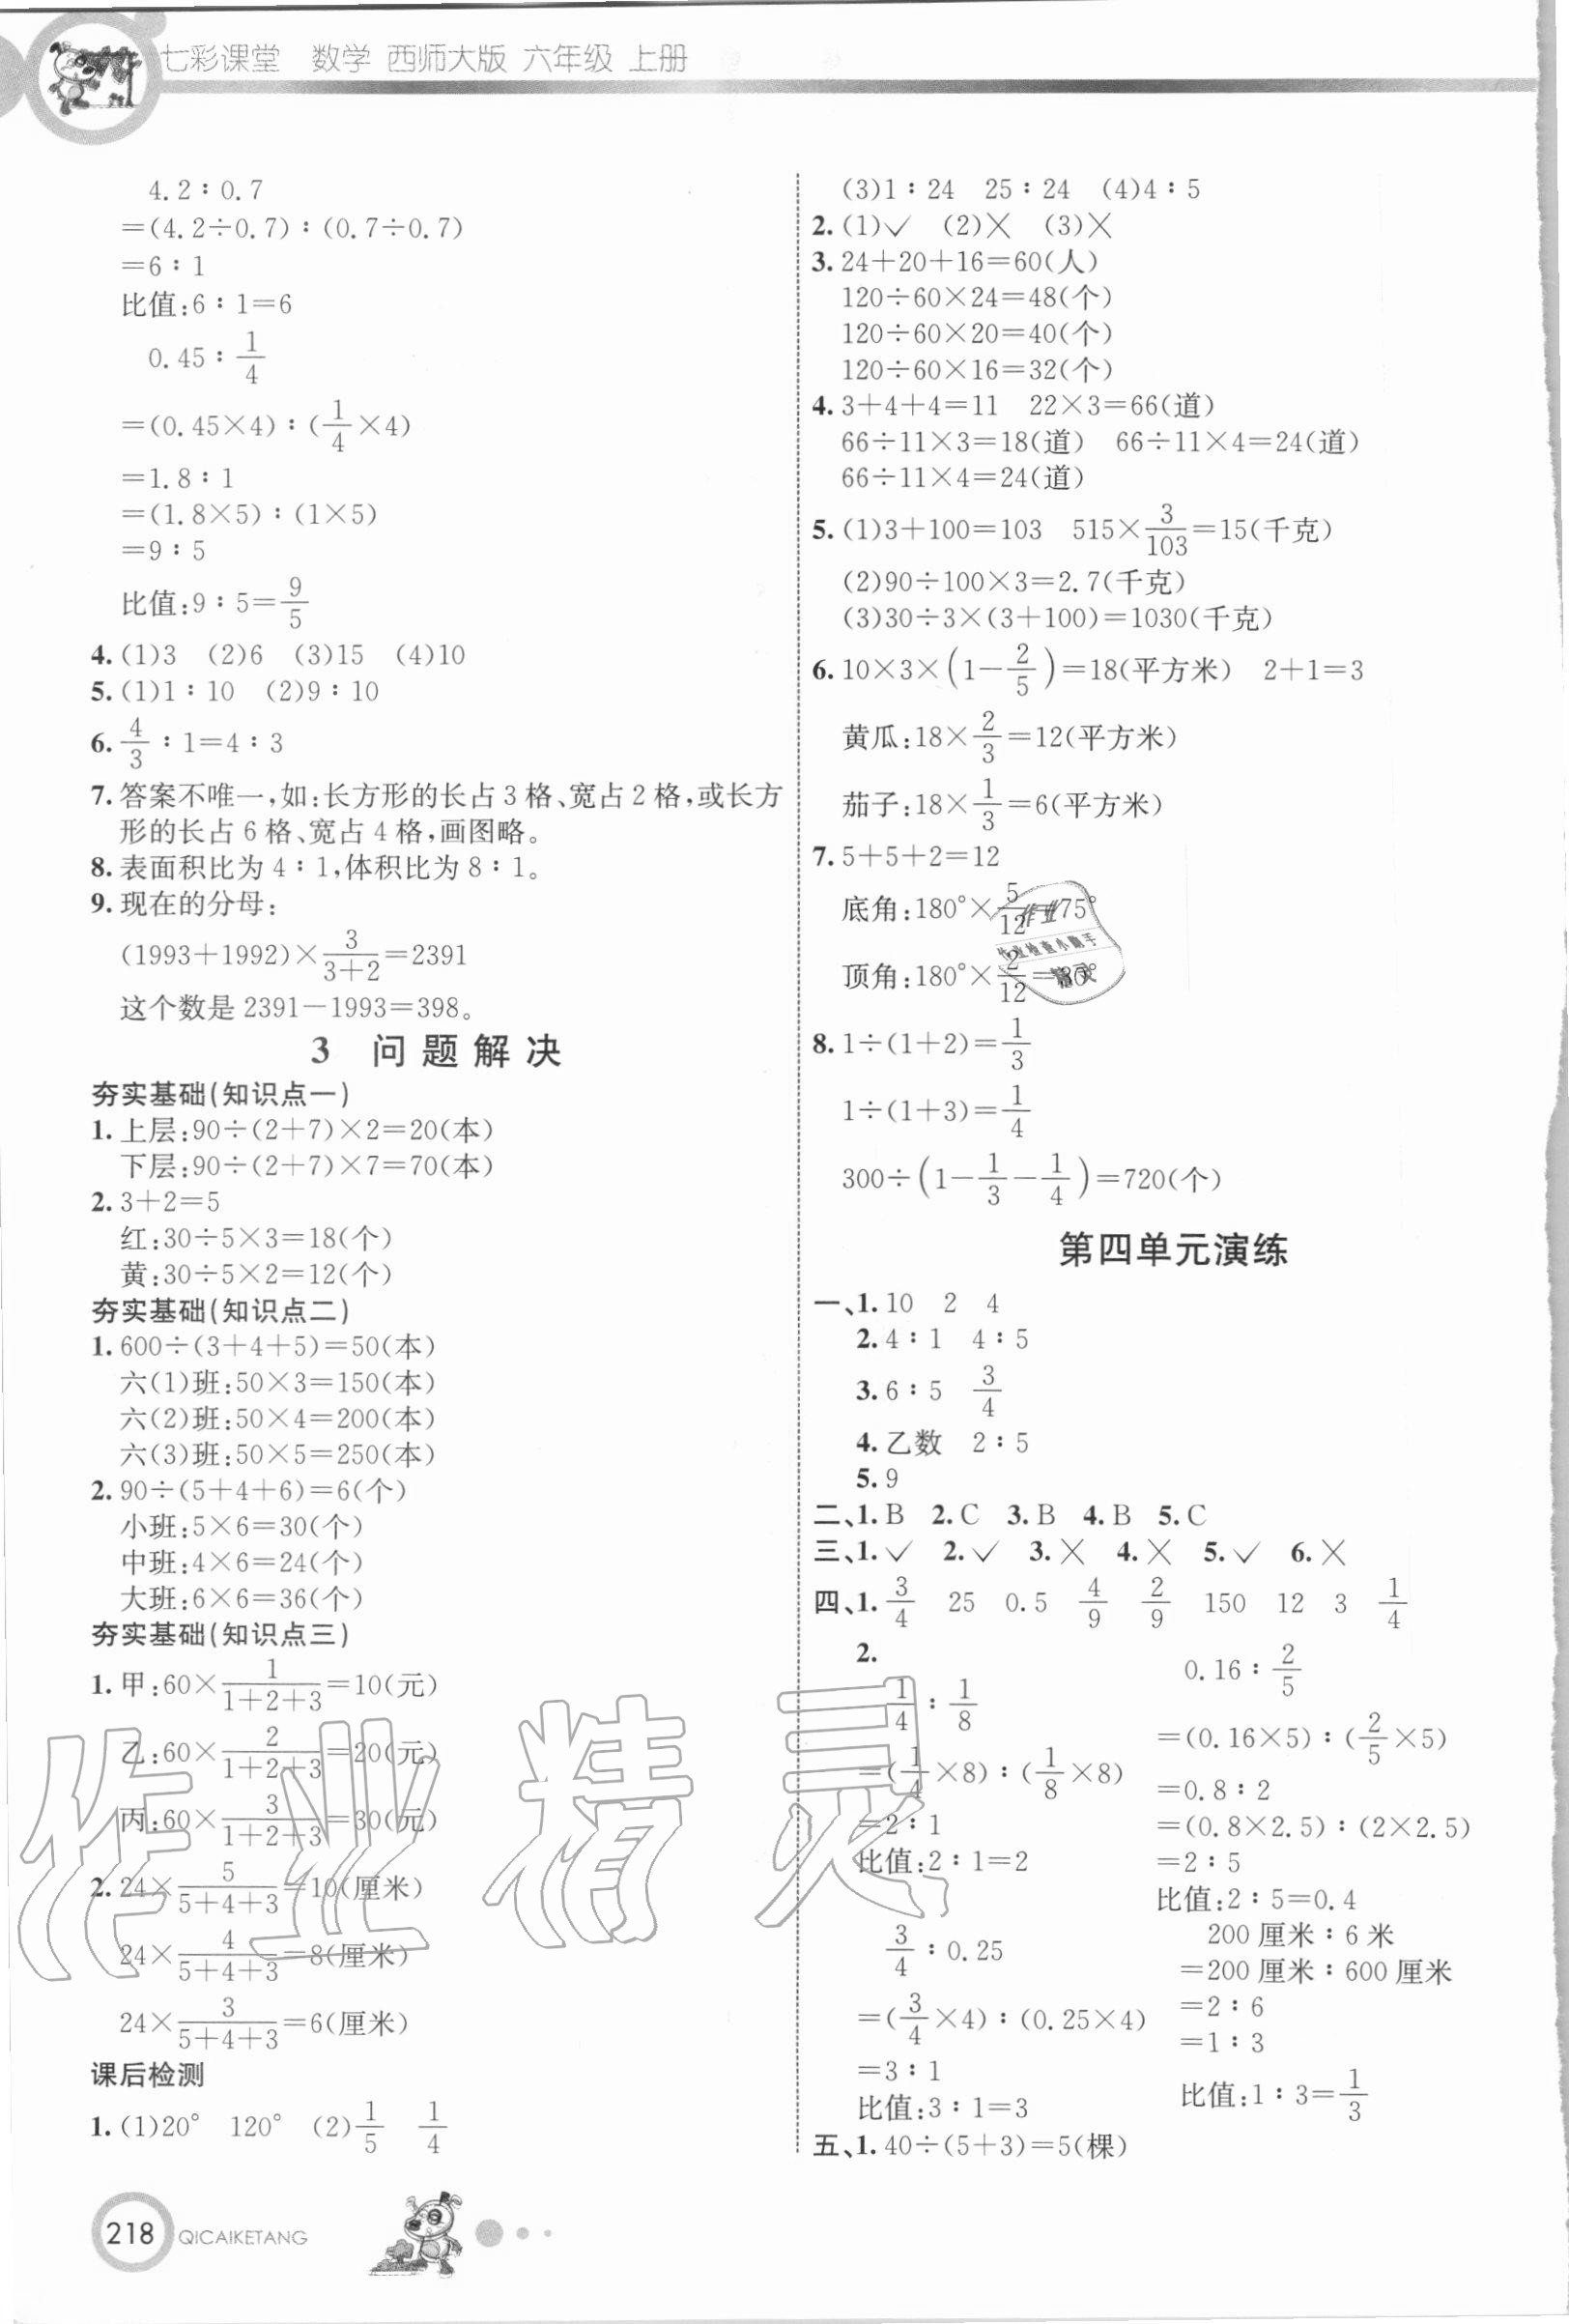 七彩课堂 数学 西师大版 六年级 上册
4.2∶0.7
=(4.2÷0.7)∶(0.7÷0.7)
=6∶1
比值:6∶1=6
0.45∶1/4
=(0.45×4)∶(1/4×4)
=1.8∶1
=(1.8×5)∶(1×5)
=9∶5
比值:9∶5=9/5
4.(1)3 (2)6 (3)15 (4)10
5.(1)1∶10 (2)9∶10
6.4/3∶1=4∶3
7.答案不唯一,如:长方形的长占3格、宽占2格,或长方
形的长占6格、宽占4格,画图略。
8.表面积比为4∶1,体积比为8∶1。
9.现在的分母:
(1993+1992)×3/(3+2)=2391
这个数是2391-1993=398。
3 问题解决
夯实基础(知识点一)
1.上层:90÷(2+7)×2=20(本)
下层:90÷(2+7)×7=70(本)
2.3+2=5
红:30÷5×3=18(个)
黄:30÷5×2=12(个)
夯实基础(知识点二)
1.600÷(3+4+5)=50(本)
六(1)班:50×3=150(本)
六(2)班:50×4=200(本)
六(3)班:50×5=250(本)
2.90÷(5+4+6)=6(个)
小班:5×6=30(个)
中班:4×6=24(个)
大班:6×6=36(个)
夯实基础(知识点三)
1.甲:60×1/(1+2+3)=10(元)
乙:60×2/(1+2+3)=20(元)
丙:60×3/(1+2+3)=30(元)
2.24×5/(5+4+3)=10(厘米)
24×4/(5+4+3)=8(厘米)
24×3/(5+4+3)=6(厘米)
课后检测
1.(1)20° 120° (2)1/5 1/4
(3)1∶24 25∶24 (4)4∶5
2.(1)✓ (2)✕ (3)✕
3.24+20+16=60(人)
120÷60×24=48(个)
120÷60×20=40(个)
120÷60×16=32(个)
4.3+4+4=11 22×3=66(道)
66÷11×3=18(道) 66÷11×4=24(道)
66÷11×4=24(道)
5.(1)3+100=103 515×3/103=15(千克)
(2)90÷100×3=2.7(千克)
(3)30÷3×(3+100)=1030(千克)
6.10×3×(1-2/5)=18(平方米) 2+1=3
黄瓜:18×2/3=12(平方米)
茄子:18×1/3=6(平方米)
7.5+5+2=12
底角:180°×5/12=75°
顶角:180°×2/12=30°
作业
作业检查小助手
精灵
8.1÷(1+2)=1/3
1÷(1+3)=1/4
300÷(1-1/3-1/4)=720(个)
第四单元演练
一、1.10 2 4
2.4∶1 4∶5
3.6∶5 3/4
4.乙数 2∶5
5.9
二、1.B 2.C 3.B 4.B 5.C
三、1.✓ 2.✓ 3.✕ 4.✕ 5.✓ 6.✕
四、1.3/4 25 0.5 4/9 2/9 150 12 3 1/4
2.
1/4∶1/8
=(1/4×8)∶(1/8×8)
=2∶1
比值:2∶1=2
3/4∶0.25
=(3/4×4)∶(0.25×4)
=3∶1
比值:3∶1=3
0.16∶2/5
=(0.16×5)∶(2/5×5)
=0.8∶2
=(0.8×2.5)∶(2×2.5)
=2∶5
比值:2∶5=0.4
200厘米∶6米
=200厘米∶600厘米
=2∶6
=1∶3
比值:1∶3=1/3
五、1.40÷(5+3)=5(棵)
作业精灵
218 QICAIKETANG